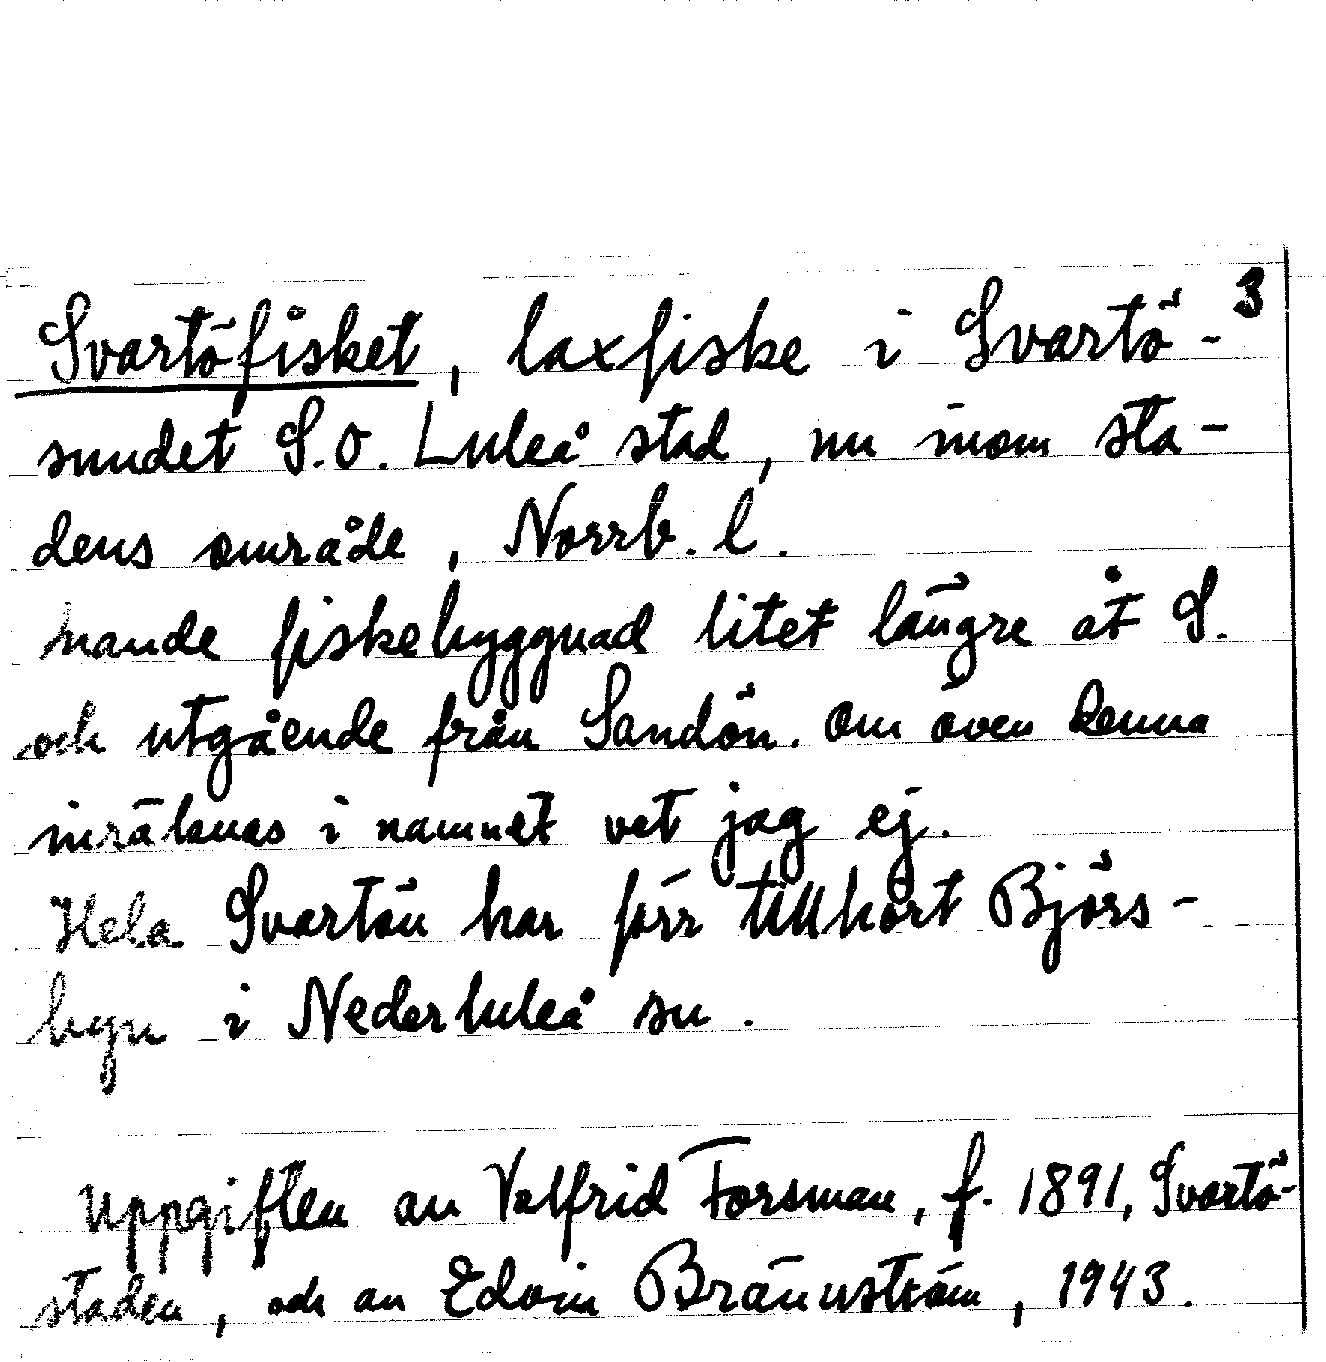 Svartöfisket, laxfiske i Svartö- 3
sundet S.O. Luleå stad, nu inom sta-
dens område, Norrb. l.
nande fiskebyggnad litet längre åt S.
och utgående från Sandön. Om även denna
inräknas i namnet vet jag ej.
Hela Svartön har förr tillhört Björs-
byn i Nederluleå sn.
Uppgiften av Valfrid Forsman, f. 1891, Svartö-
staden, och av Edvin Brännström, 1943.